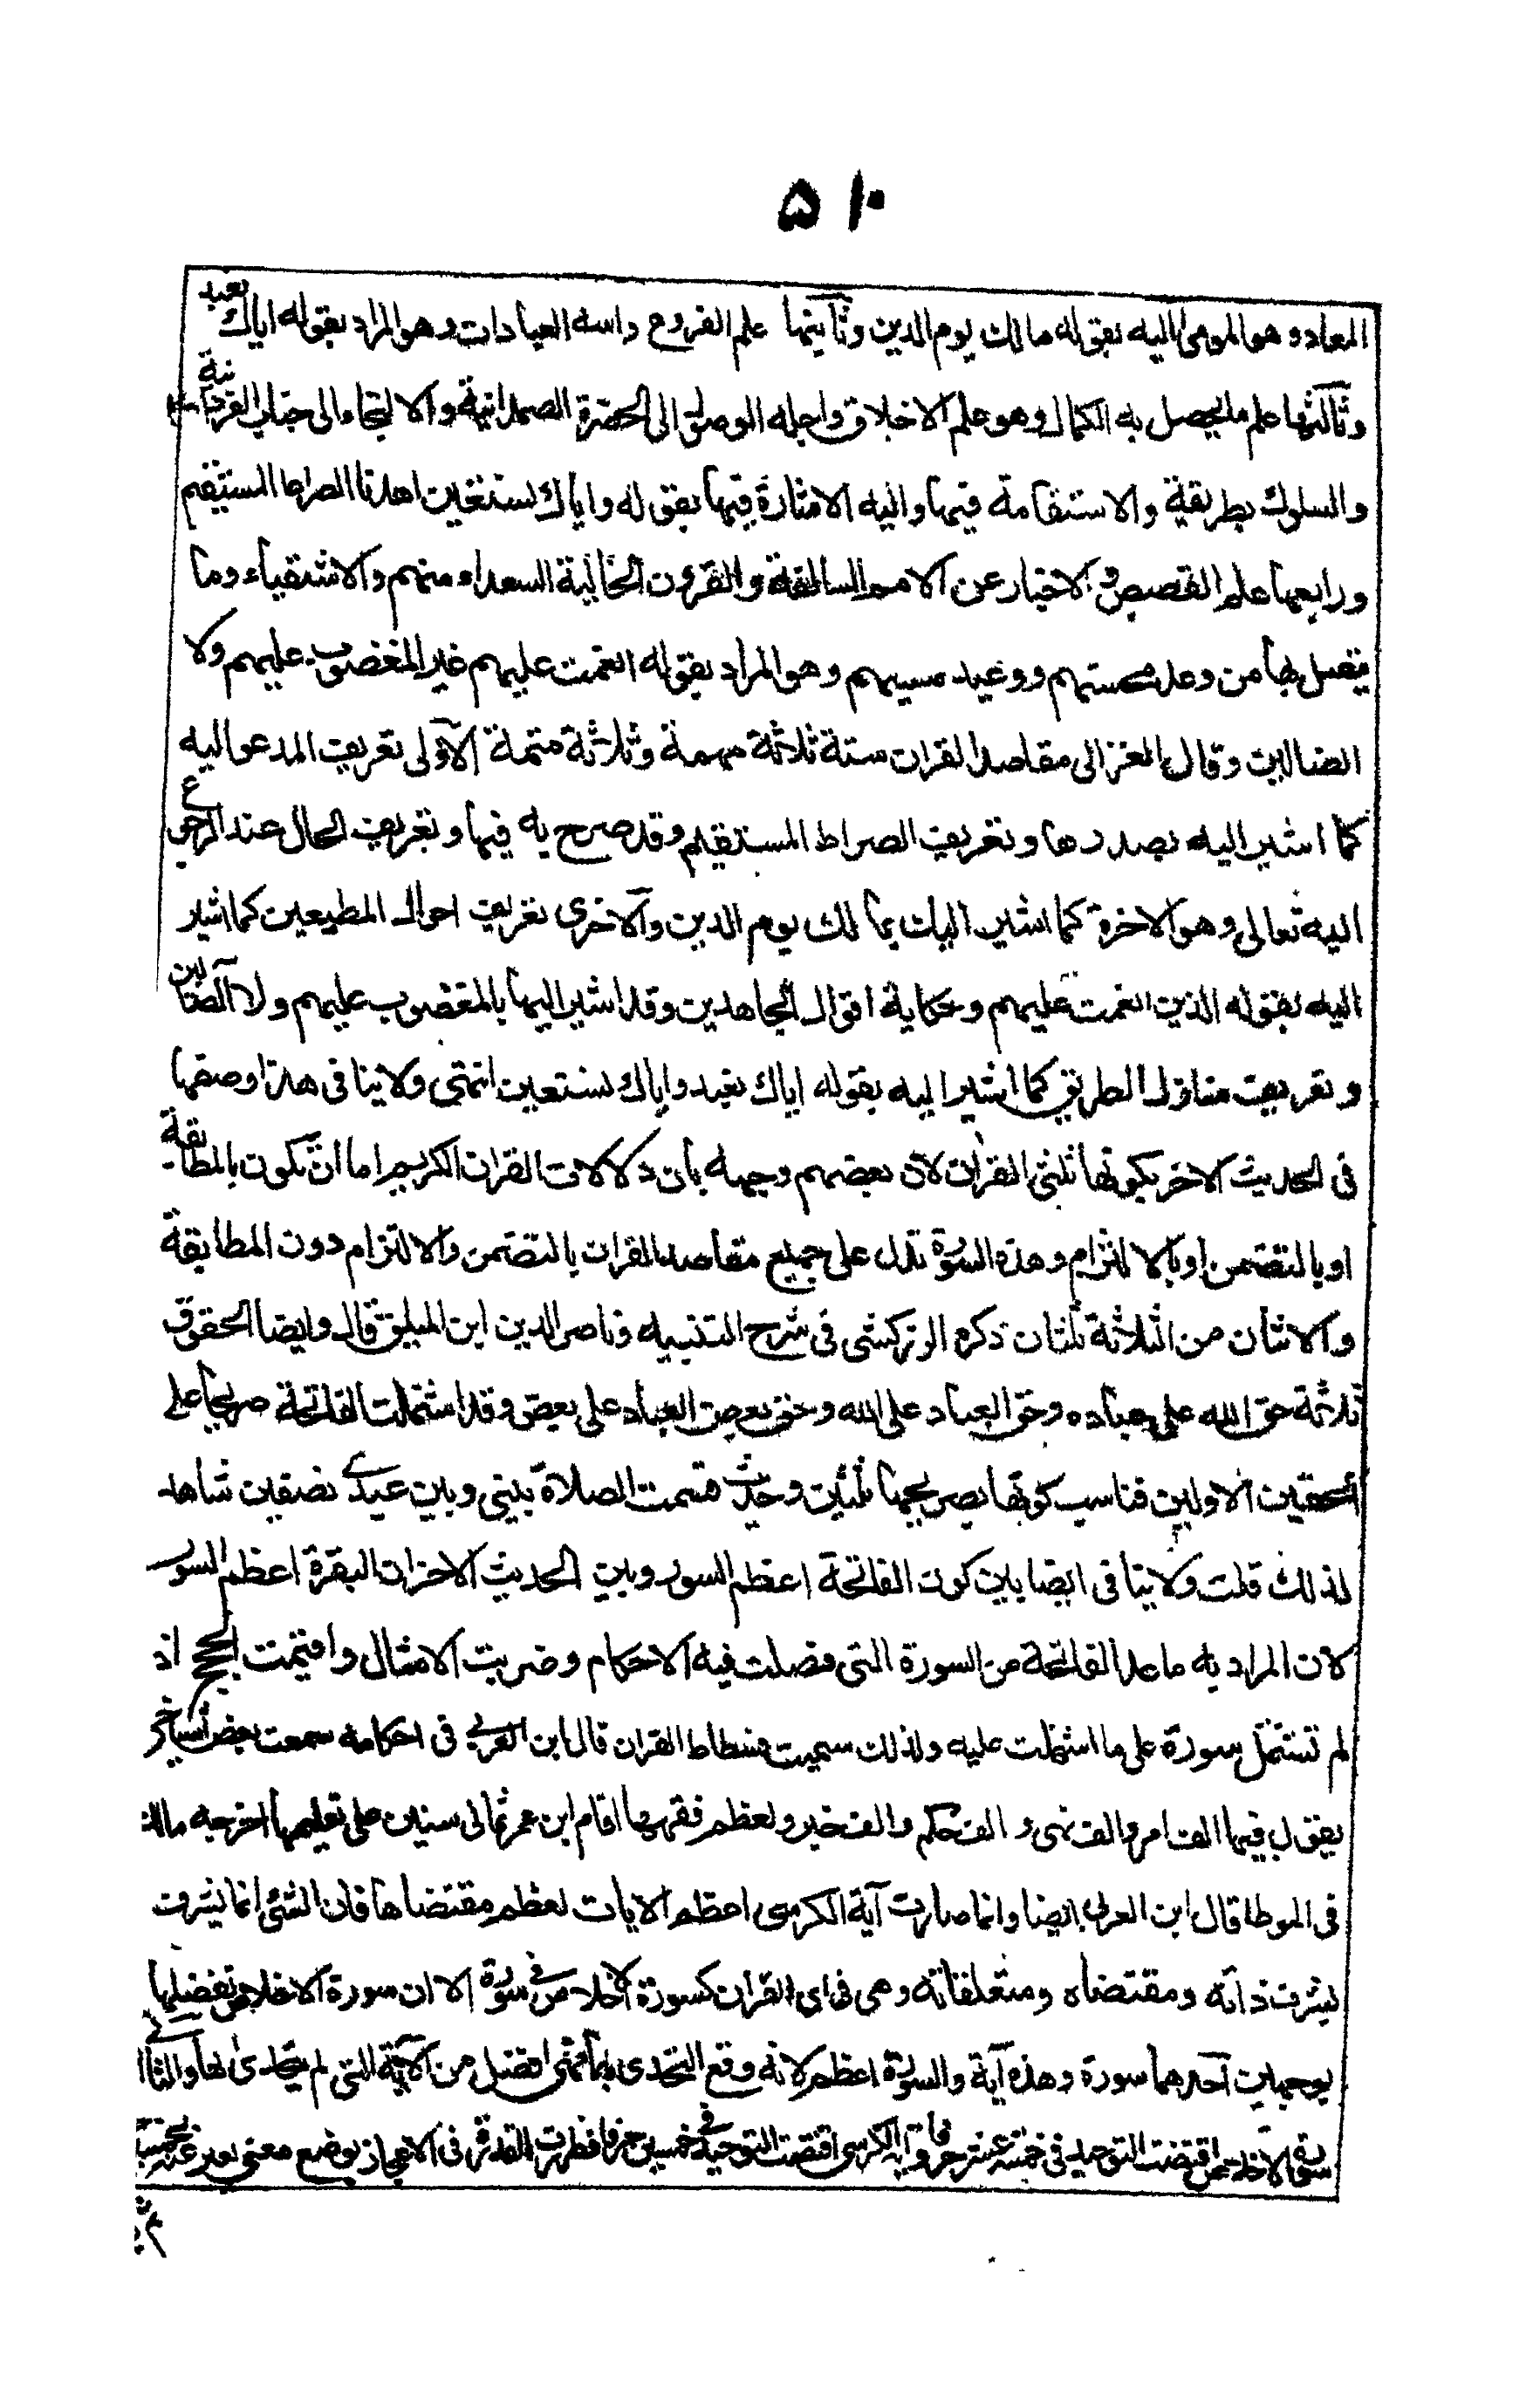 ٥١٠
المعاد وهو المومى اليه بقوله مالك يوم الدين وثانيها علم الفروع واسه العبادات وهو المراد بقوله اياك نعبد
وثالثها علم ما يحصل به الكمال وهو علم الاخلاق واجله الوصول الى الحضرة الصمدانية والالتجاء الى جناب الفردانية
والسلوك بطريقة والاستقامة فيها واليه الاشارة فيها بقوله واياك نستعين اهدنا الصراط المستقيم
ورابعها علم القصص والاخبار عن الامم السالفة والقرون الخالية السعداء منهم والاشقياء وما
يتصل بها من وعد محسنهم ووعيد مسيهم وهو المراد بقوله انعمت عليهم غير المغضوب عليهم ولا
الضالين وقال الغزالى مقاصد القران ستة ثلاثة مهمة وثلاثة متمة الاولى تعريف المدعو اليه
كما اشير اليه بصدرها وتعريف الصراط المستقيم وقد صرح به فيها وتعريف الحال عند الرجوع
اليه تعالى وهو الاخرة كما اشير اليك بمالك يوم الدين والاخرى تعريف احوال المطيعين كما اشير
اليه بقوله الذين انعمت عليهم وحكاية اقوال الجاهدين وقد اشير اليها بالمغضوب عليهم ولا الضالين
وتعريف منازل الطريق كما اشير اليه بقوله اياك نعبد واياك نستعين انتهى ولا ينافى هذا وصفها
فى الحديث الاخر بكونها ثلثى القران لان بعضهم وجهه بان دلالات القران الكريم اما ان تكون بالمطابقة
او بالتضمن او بالالتزام وهذه السورة تدل على جميع مقاصد القران بالتضمن والالتزام دون المطابقة
والاثنان من الثلاثة ثلثان ذكره الزركشى فى شرح التنبيه وناصر الدين ابن الميلق قال وايضا الحقوق
ثلاثة حق الله على عباده وحق العباد على الله وحق بعض العباد على بعض وقد اشتملت الفاتحة صريحا على
الحقين الاولين فناسب كونها بصريحها ثلثين وحديث قسمت الصلاة بينى وبين عبدى نصفين شاهد
لذلك قلت ولا ينافى ايضا بين كون الفاتحة اعظم السور وبين الحديث الاخر ان البقرة اعظم السور
لان المراد به ما عدا الفاتحة من السورة التى فصلت فيه الاحكام وضربت الامثال واقيمت الحجج اذ
لم تشتمل سورة على ما اشتملت عليه ولذلك سميت فسطاط القران قال ابن العربى فى احكامه سمعت بعض اشياخى
يقول فيها الف امر والف نهى والف حكم والف خبر ولعظم فقهها اقام ابن عمر ثمانى سنين على تعليمها اخرجه مالك
فى الموطا قال ابن العربى ايضا وانما صارت آية الكرسى اعظم الايات لعظم مقتضاها فان الشئ انما يشرف
بشرف ذاته ومقتضاه ومتعلقاته وهى فى اى القران كسورة الاخلاص فى سورة الا ان سورة الاخلاص تفضلها
بوجهين احدهما سورة وهذه آية والسورة اعظم لانه وقع التحدى بها فهى افضل من الآية التى لم يتحدى بها والثانى
سورة الاخلاص اقتضت التوحيد فى خمسة عشر حرفا وآية الكرسى اقتضت التوحيد فى خمسين حرفا فظهرت القدرة فى الاعجاز بوضع معنى يعبر عنه